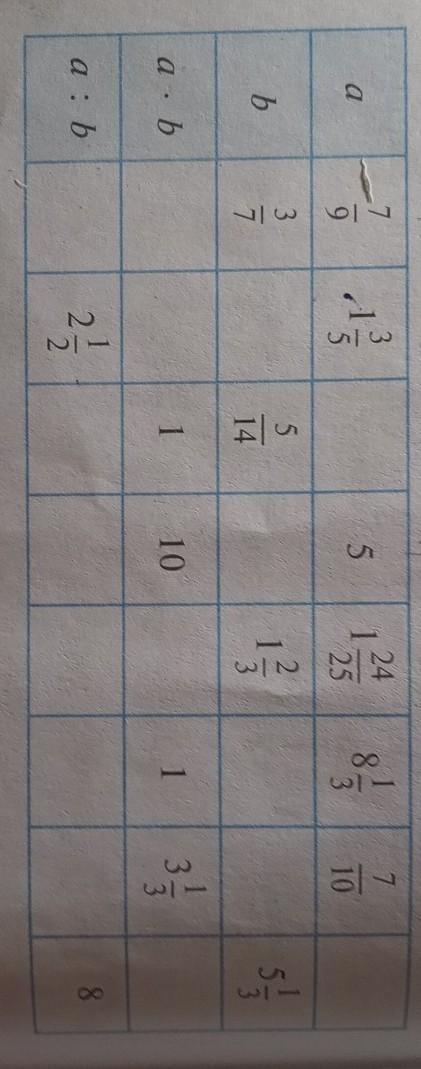 a 7/9 1 3/5 5 1 24/25 8 1/3 7/10
b 3/7 5/14 1 2/3 5 1/3
a · b 1 10 1 3 1/3
a : b 2 1/2 8